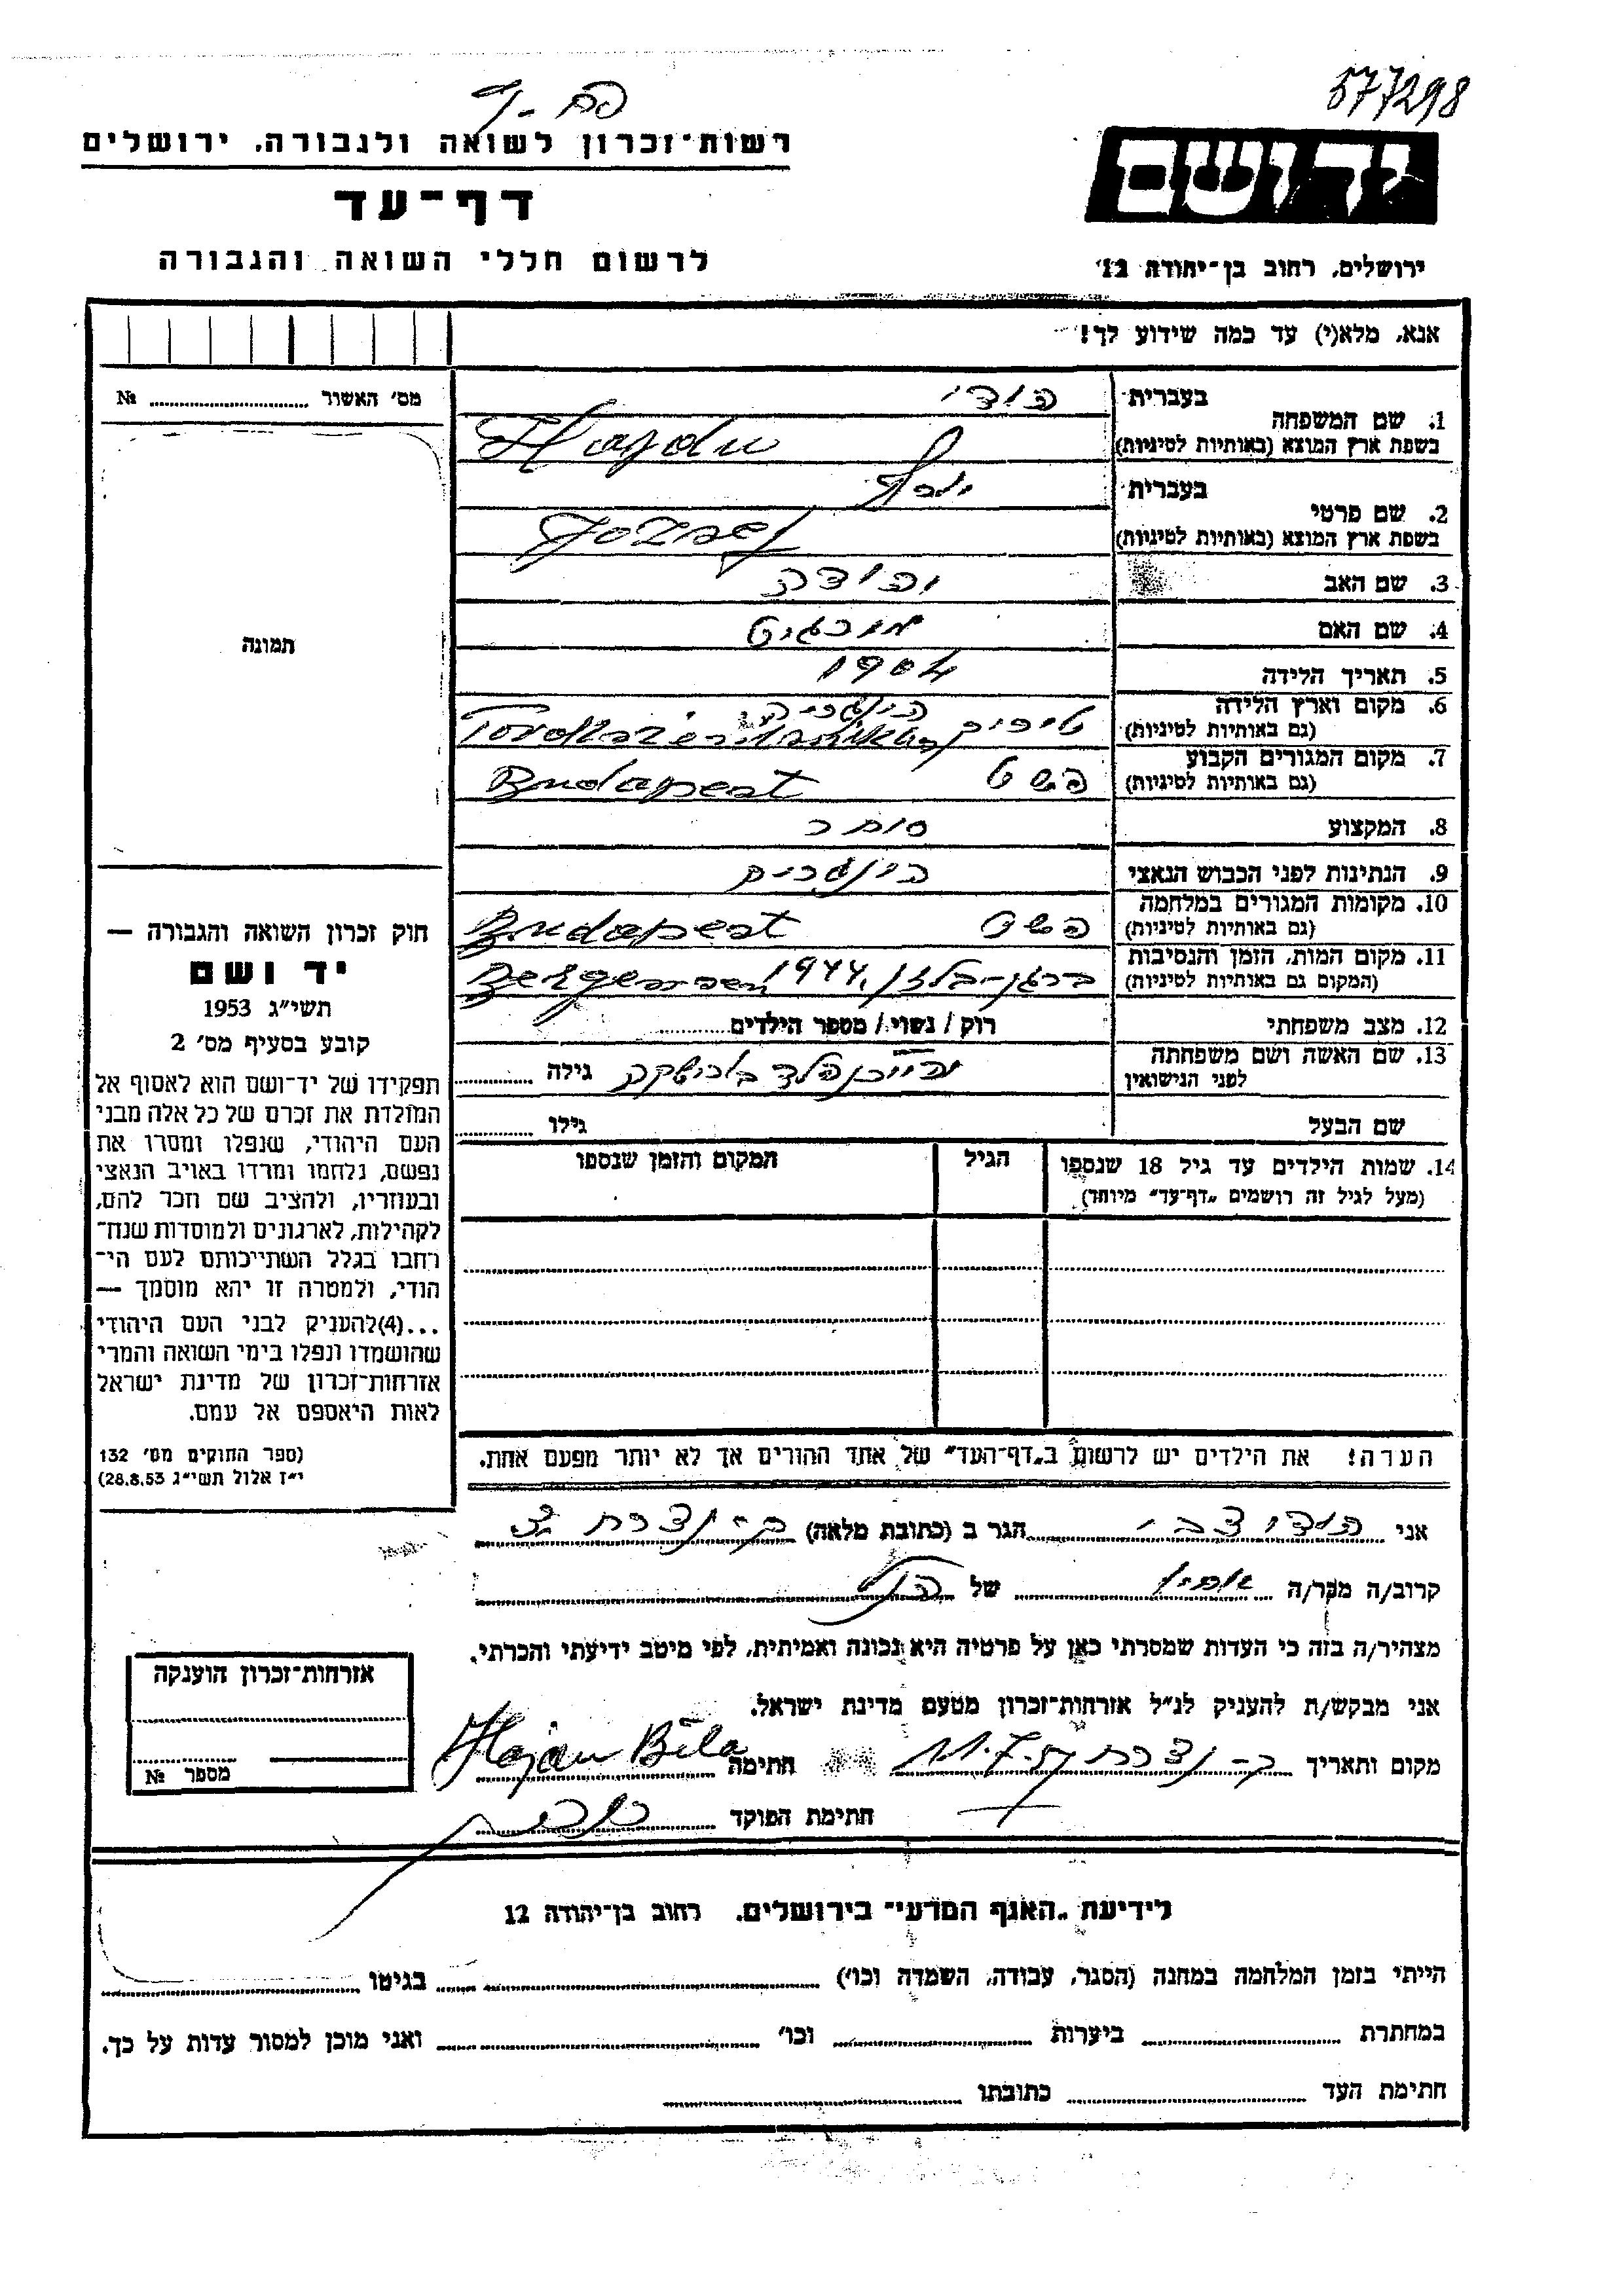 577298
רשות־זכרון לשואה ולגבורה, ירושלים
דף־עד
לרשום חללי השואה והגבורה
יד ושם
ירושלים, רחוב בן־יהודה 12
אנא, מלא(י) עד כמה שידוע לך!
מס׳ האשור № 
תמונה
בעברית
1. שם המשפחה
בשפת ארץ המוצא (באותיות לטיניות) Hajdu
בעברית יוסף
2. שם פרטי
בשפת ארץ המוצא (באותיות לטיניות) Jozsef
3. שם האב יהודה
4. שם האם
5. תאריך הלידה 1904
6. מקום וארץ הלידה
(גם באותיות לטיניות)
7. מקום המגורים הקבוע
(גם באותיות לטיניות) פשט Budapest
8. המקצוע סוחר
9. הנתינות לפני הכבוש הנאצי
10. מקומות המגורים במלחמה
(גם באותיות לטיניות) פשט Budapest
11. מקום המות, הזמן והנסיבות
(המקום גם באותיות לטיניות) ברגן-בלזן 1944
12. מצב משפחתי רוק / נשוי / מספר הילדים
13. שם האשה ושם משפחתה
לפני הנישואין גילה
שם הבעל גילו
14. שמות הילדים עד גיל 18 שנספו הגיל המקום והזמן שנספו
(מעל לגיל זה רושמים „דף־עד״ מיוחד)
חוק זכרון השואה והגבורה —
יד ושם
תשי״ג 1953
קובע בסעיף מס׳ 2
תפקידו של יד־ושם הוא לאסוף אל
המולדת את זכרם של כל אלה מבני
העם היהודי, שנפלו ומסרו את
נפשם, נלחמו ומרדו באויב הנאצי
ובעוזריו, ולהציב שם וזכר להם,
לקהילות, לארגונים ולמוסדות שנח־
רחבו בגלל השתייכותם לעם הי־
הודי, ולמטרה זו יהא מוסמך —
...(4)להעניק לבני העם היהודי
שהושמדו ונפלו בימי השואה והמרי
אזרחות־זכרון של מדינת ישראל
לאות היאספם אל עמם.
(ספר החוקים מס׳ 132
י״ז אלול תשי״ג 28.8.53)
הערה! את הילדים יש לרשום ב„דף־העד״ של אחד ההורים אך לא יותר מפעם אחת.
אני הגר ב (כתובת מלאה) ק-נצרת
קרוב/ה מכר/ה של
מצהיר/ה בזה כי העדות שמסרתי כאן על פרטיה היא נכונה ואמיתית, לפי מיטב ידיעתי והכרתי.
אני מבקש/ת להעניק לנ״ל אזרחות־זכרון מטעם מדינת ישראל.
מקום ותאריך ק-נצרת 11.7.57 חתימה Hajdu Béla
חתימת הפוקד
אזרחות־זכרון הוענקה
מספר №
לידיעת „האגף המדעי״ בירושלים, רחוב בן־יהודה 12
הייתי בזמן המלחמה במחנה (הסגר, עבודה, השמדה וכו׳) בגיטו
במחתרת ביערות וכו׳ ואני מוכן למסור עדות על כך.
חתימת העד כתובתו